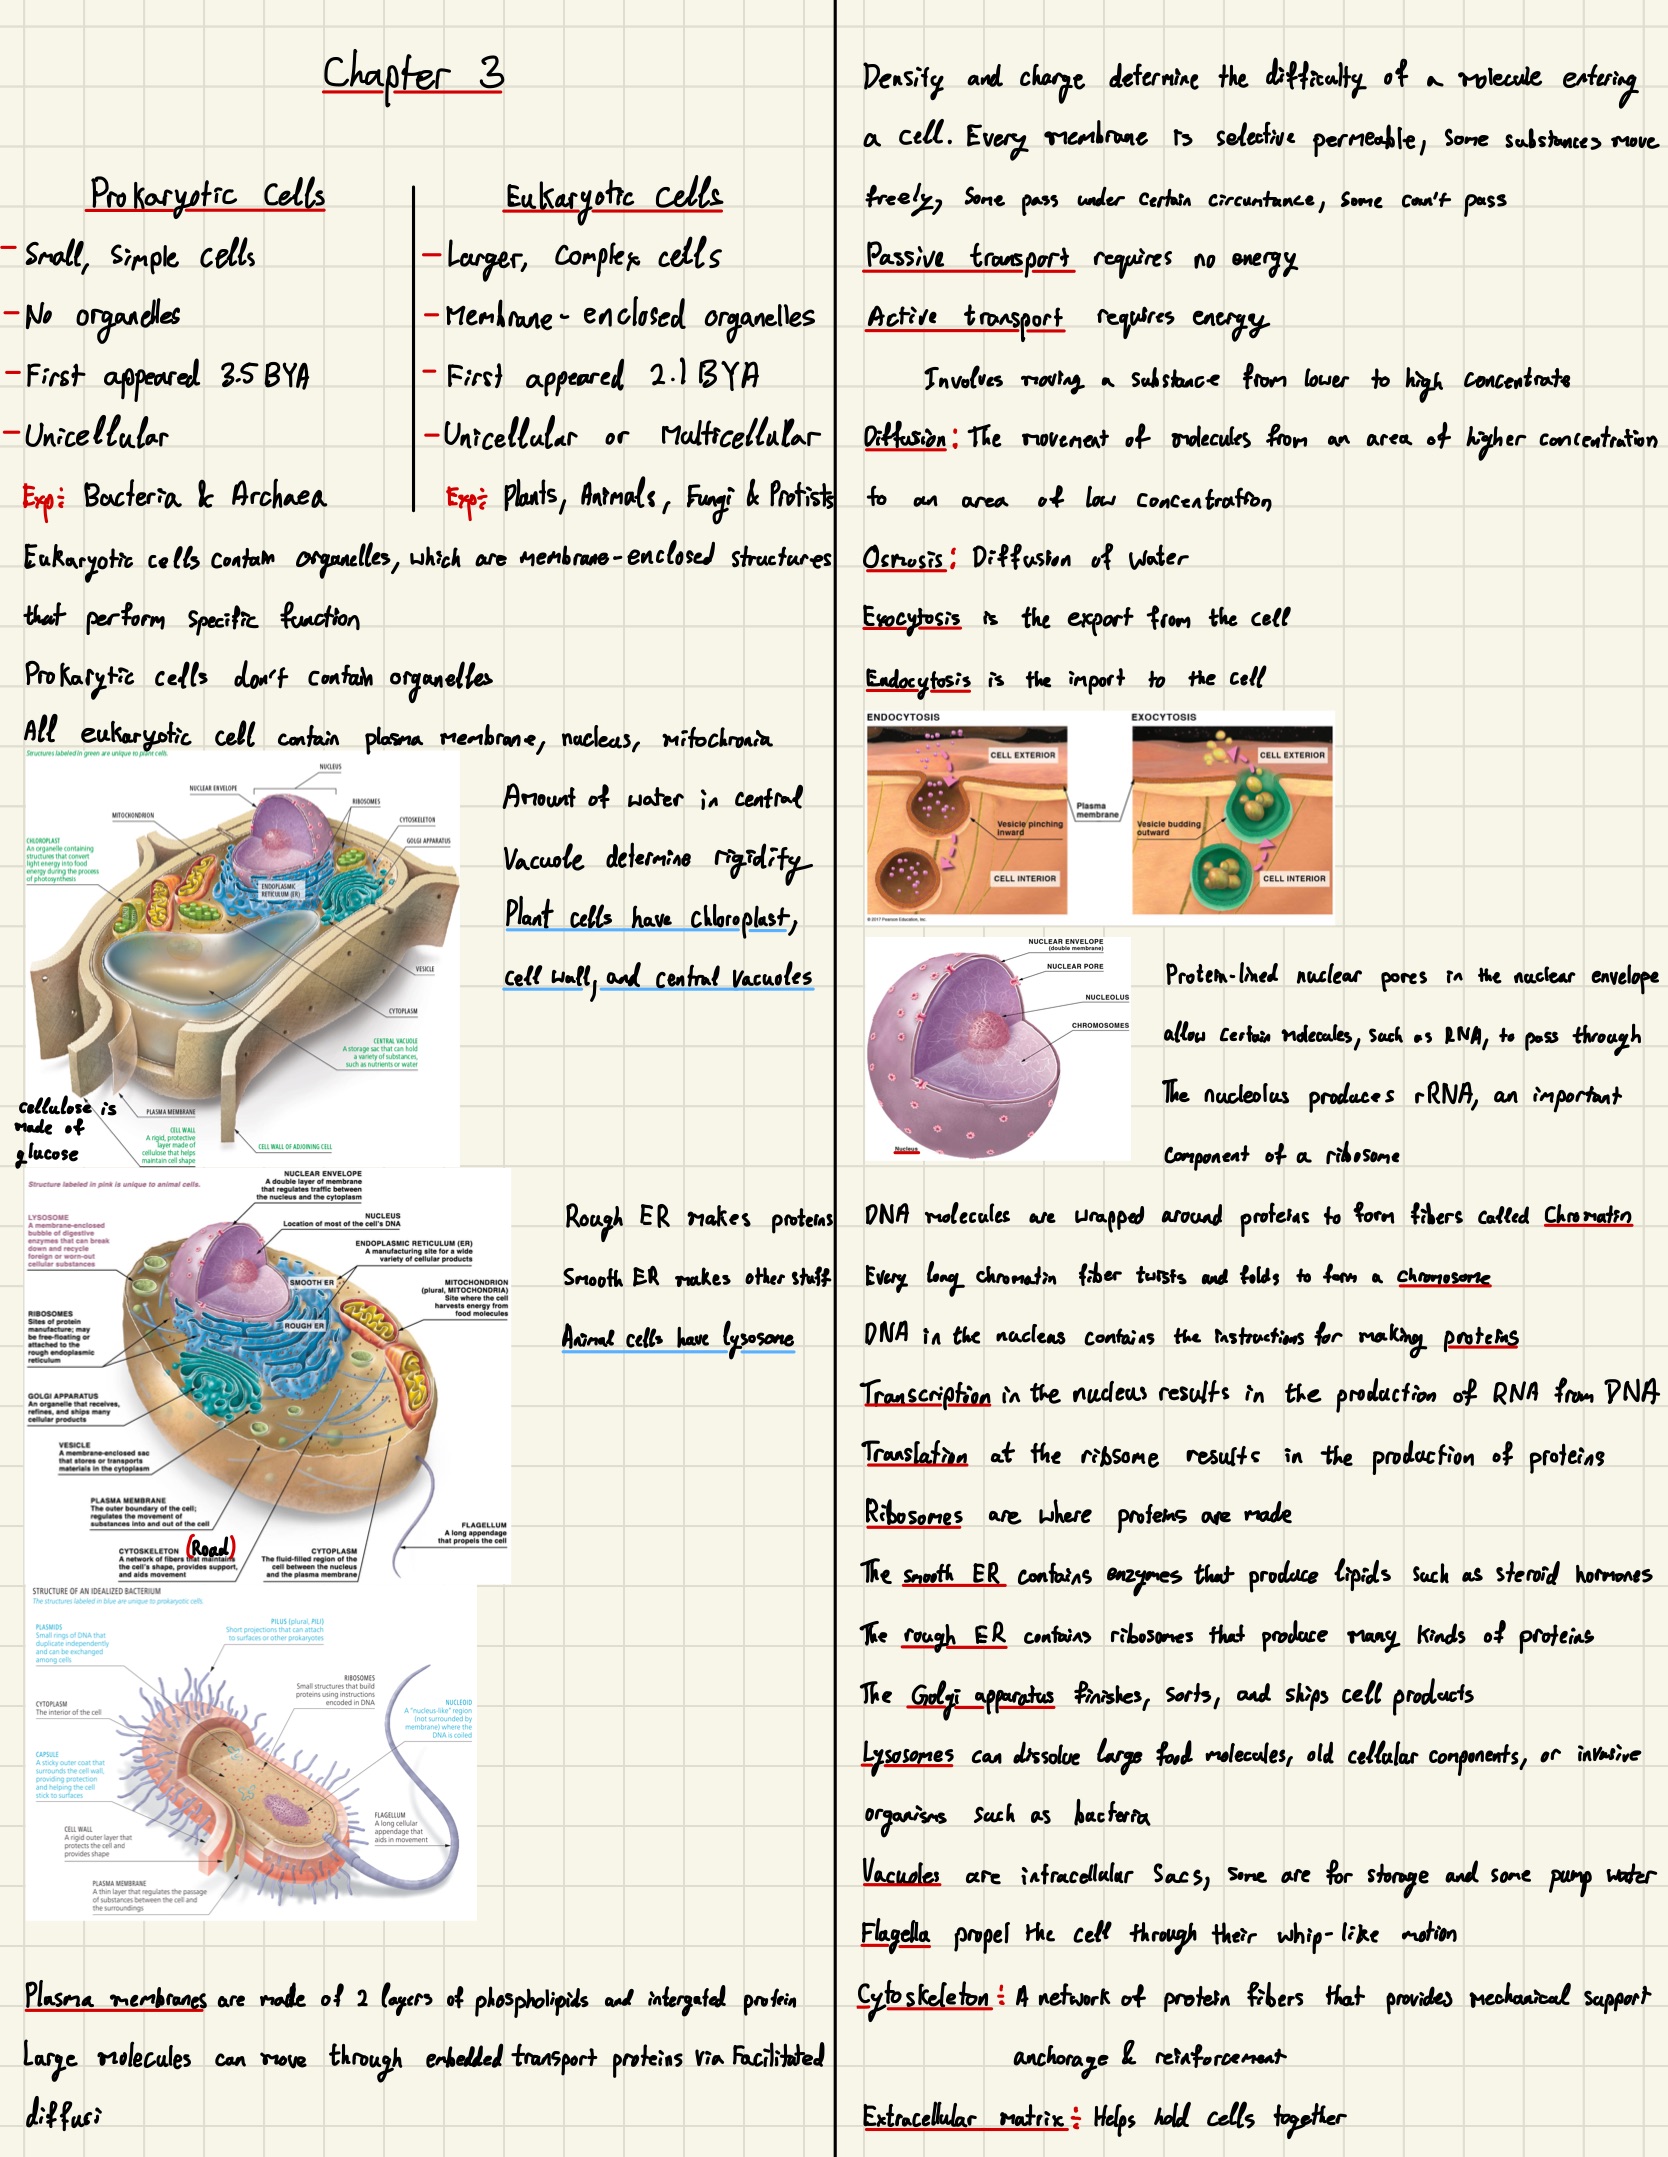 Chapter 3
Prokaryotic Cells
- Small, Simple cells
- No organelles
- First appeared 3.5 BYA
- Unicellular
Exp: Bacteria & Archaea
Eukaryotic Cells
- Larger, Complex cells
- Membrane-enclosed organelles
- First appeared 2.1 BYA
- Unicellular or Multicellular
Exp: Plants, Animals, Fungi & Protists
Eukaryotic cells contain organelles, which are membrane-enclosed structures
that perform specific function
Prokarytic cells don't contain organelles
All eukaryotic cell contain plasma membrane, nucleus, mitochronia
Structures labeled in green are unique to plant cells.
NUCLEUS
NUCLEAR ENVELOPE
RIBOSOMES
MITOCHONDRION
CYTOSKELETON
GOLGI APPARATUS
CHLOROPLAST
An organelle containing
structures that convert
light energy into food
energy during the process
of photosynthesis
ENDOPLASMIC
RETICULUM (ER)
VESICLE
CYTOPLASM
CENTRAL VACUOLE
A storage sac that can hold
a variety of substances,
such as nutrients or water
PLASMA MEMBRANE
CELL WALL
A rigid, protective
layer made of
cellulose that helps
maintain cell shape
CELL WALL OF ADJOINING CELL
cellulose is
made of
glucose
Amount of water in central
Vacuole determine rigidity
Plant cells have Chloroplast,
cell wall, and central Vacuoles
Structure labeled in pink is unique to animal cells.
NUCLEAR ENVELOPE
A double layer of membrane
that regulates traffic between
the nucleus and the cytoplasm
LYSOSOME
A membrane-enclosed
bubble of digestive
enzymes that can break
down and recycle
foreign or worn-out
cellular substances
NUCLEUS
Location of most of the cell's DNA
ENDOPLASMIC RETICULUM (ER)
A manufacturing site for a wide
variety of cellular products
SMOOTH ER
MITOCHONDRION
(plural, MITOCHONDRIA)
Site where the cell
harvests energy from
food molecules
RIBOSOMES
Sites of protein
manufacture; may
be free-floating or
attached to the
rough endoplasmic
reticulum
ROUGH ER
GOLGI APPARATUS
An organelle that receives,
refines, and ships many
cellular products
VESICLE
A membrane-enclosed sac
that stores or transports
materials in the cytoplasm
PLASMA MEMBRANE
The outer boundary of the cell;
regulates the movement of
substances into and out of the cell
FLAGELLUM
A long appendage
that propels the cell
CYTOSKELETON (Road)
A network of fibers that maintains
the cell's shape, provides support,
and aids movement
CYTOPLASM
The fluid-filled region of the
cell between the nucleus
and the plasma membrane
Rough ER makes proteins
Smooth ER makes other stuff
Animal cells have lysosome
STRUCTURE OF AN IDEALIZED BACTERIUM
The structures labeled in blue are unique to prokaryotic cells.
PLASMIDS
Small rings of DNA that
duplicate independently
and can be exchanged
among cells
PILUS (plural, PILI)
Short projections that can attach
to surfaces or other prokaryotes
RIBOSOMES
Small structures that build
proteins using instructions
encoded in DNA
CYTOPLASM
The interior of the cell
NUCLEOID
A "nucleus-like" region
(not surrounded by
membrane) where the
DNA is coiled
CAPSULE
A sticky outer coat that
surrounds the cell wall,
providing protection
and helping the cell
stick to surfaces
FLAGELLUM
A long cellular
appendage that
aids in movement
CELL WALL
A rigid outer layer that
protects the cell and
provides shape
PLASMA MEMBRANE
A thin layer that regulates the passage
of substances between the cell and
the surroundings
Plasma membranes are made of 2 layers of phospholipids and intergated protein
Large molecules can move through embedded transport proteins via Facilitated
diffusi
Density and charge determine the difficulty of a molecule entering
a cell. Every membrane is selective permeable, some substances move
freely, Some pass under certain circumtance, some can't pass
Passive transport requires no energy
Active transport requires energy
Involves moving a substance from lower to high concentrate
Diffusion: The movement of molecules from an area of higher concentration
to an area of low concentration
Osmosis: Diffusion of water
Exocytosis is the export from the cell
Endocytosis is the import to the cell
ENDOCYTOSIS
EXOCYTOSIS
CELL EXTERIOR
CELL EXTERIOR
Plasma
membrane
Vesicle pinching
inward
Vesicle budding
outward
CELL INTERIOR
CELL INTERIOR
© 2017 Pearson Education, Inc.
NUCLEAR ENVELOPE
(double membrane)
NUCLEAR PORE
NUCLEOLUS
CHROMOSOMES
Nucleus
Protein-lined nuclear pores in the nuclear envelope
allow certain molecules, such as RNA, to pass through
The nucleolus produces rRNA, an important
component of a ribosome
DNA molecules are wrapped around proteins to form fibers called Chromatin
Every long chromatin fiber twists and folds to form a chromosome
DNA in the nucleus contains the instructions for making proteins
Transcription in the nucleus results in the production of RNA from DNA
Translation at the ribsome results in the production of proteins
Ribosomes are where proteins are made
The smooth ER contains enzymes that produce lipids such as steroid hormones
The rough ER contains ribosomes that produce many kinds of proteins
The Golgi apparatus finishes, sorts, and ships cell products
Lysosomes can dissolve large food molecules, old cellular components, or invasive
organisms such as bacteria
Vacuoles are intracellular Sacs, some are for storage and some pump water
Flagella propel the cell through their whip-like motion
Cytoskeleton: A network of protein fibers that provides mechanical support
anchorage & reinforcement
Extracellular matrix: Helps hold cells together